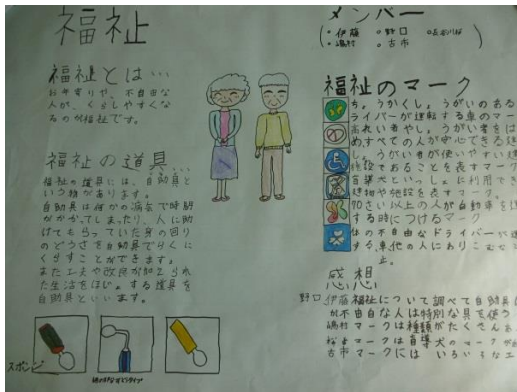 福祉
メンバー
・伊藤 ・野口
・嶋村 ・古市
福祉とは…
お年寄りや、不自由な
人が、くらしやすくな
るのが福祉です。
福祉の道具…
福祉の道具には、自助具と
いう物があります。
自助具は何かの
がかかってしまったり、人に助
けてもらっていた身の回り
のどうさを自助具でらくに
くらすことができます。
また工夫や改良が加えられ
た生活をはじ。する道具を
自助具といいます。
スポンジ
福祉のマーク
ちょうかくしょうがいのある
ライバーが運転する車のマー
高れい者やしょうがい者をは
め、すべての人が安心できる
しょうがい者が使いやすい
であることを表すマーク
盲導犬といっしょに利用でき
建物や施設を表すマーク。
70さい以上の人が自動車を
する時につけるマーク
体の不自由なドライバーに
する、車他の人にわりこむ
止。
感想
野口 伊藤 福祉について調べて自助具
が不自由な人は特別な具を使う
嶋村 マークは種類がたくさんあ
マークは盲導犬のマークが
古市 マークにはいろいろな工